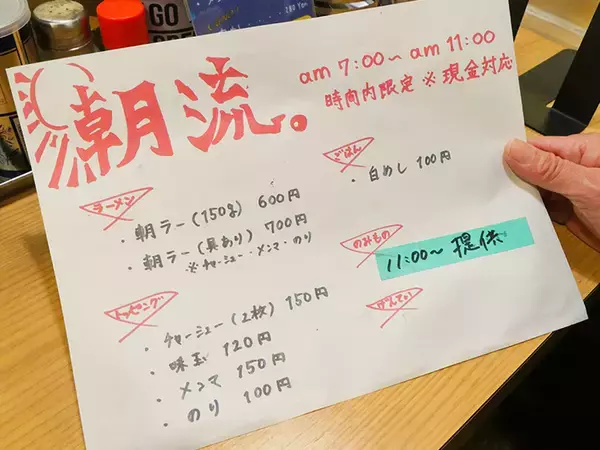 GO
朝流。
am 7:00～am 11:00
時間内限定 ※現金対応
ラーメン
・朝ラー(150g) 600円
・朝ラー(具あり) 700円
※チャーシュー・メンマ・のり
トッピング
・チャーシュー(2枚) 150円
・味玉 120円
・メンマ 150円
・のり 100円
ごはん
・白めし 100円
のみもの
11:00～提供
げんてい